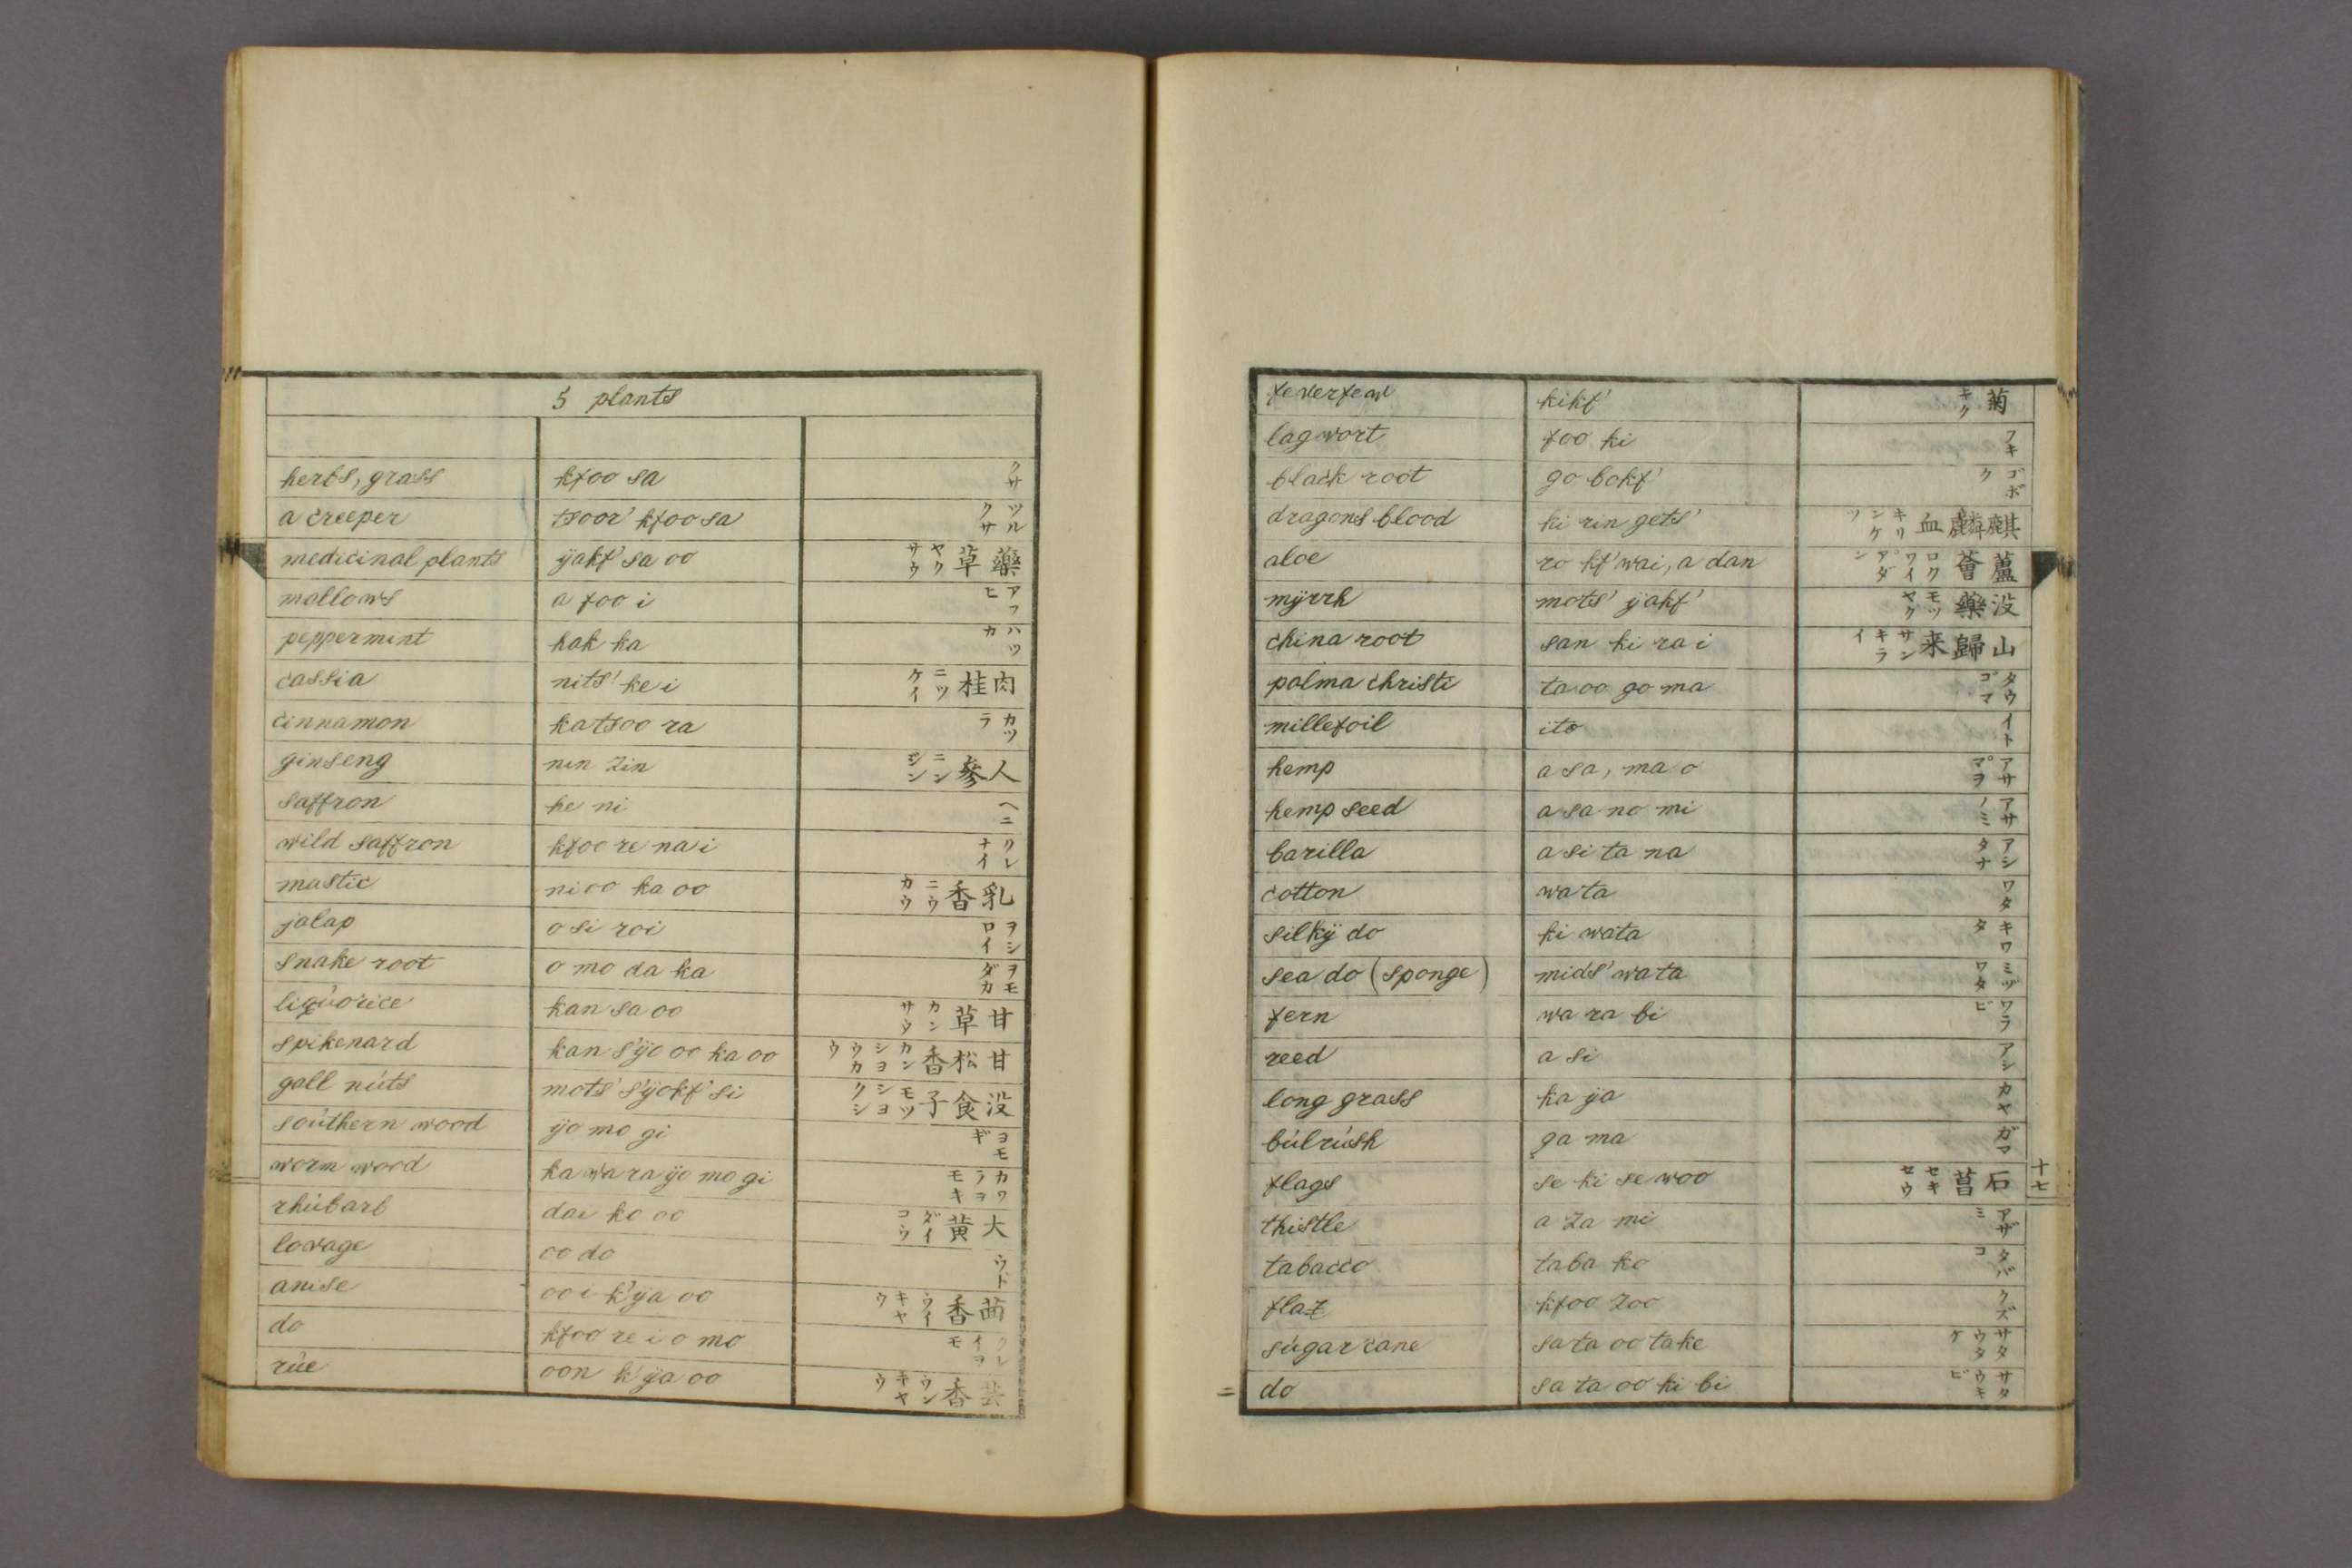 5 plants
herbs, grass kfoo sa クサ
a creeper tsoor' kfoo sa ツルクサ
medicinal plants ÿakf' sa oo 藥草 ヤクサウ
mallows a foo i アフヒ
peppermint hak ka ハツカ
cassia nits' ke i 肉桂 ニツケイ
cinnamon katsoo ra カツラ
ginseng nin zin 人參 ニンジン
saffron be ni ヘニ
wild saffron kfoo re na i クレナイ
mastic ni oo ka oo 乳香 ニウカウ
jalap o si roi ヲシロイ
snake root o mo da ka ヲモダカ
liquorice kan sa oo 甘草 カンサウ
spikenard kan s'ÿo oo ka oo 甘松香 カンシヨウカウ
gall nuts mots' s'ÿokf' si 没食子 モツシヨクシ
southern wood ÿo mo gi ヨモギ
worm wood ka wa ra ÿo mo gi カワラヨモキ
rhubarb dai ko oo 大黄 ダイコウ
lovage oo do ウド
anise oo i k'ÿa oo 茴香 ウイキヤウ
do kfoo re i o mo クレイヲモ
rue oon k'ÿa oo 芸香 ウンキヤウ
feverfew kikf' 菊 キク
lagwort foo ki フキ
black root go bokf' ゴボク
dragons blood ki rin gets' 麒麟血 キリンケツ
aloe ro kf' wai, a dan 蘆薈 ロクワイ アダン
mÿrrh mots' ÿakf' 没藥 モツヤク
china root san ki ra i 山歸来 サンキライ
palma christi ta oo go ma タウゴマ
millefoil ito イト
hemp a sa, ma o アサ マヲ
hemp seed a sa no mi アサノミ
barilla a si ta na アシタナ
cotton wa ta ワタ
silkÿ do ki wata キワタ
sea do (sponge) mids' wa ta ミヅワタ
fern wa ra bi ワラビ
reed a si アシ
long grass ka ÿa カヤ
bulrush ga ma ガマ
flags se ki se woo 石菖 セキセウ
十七
thistle a za mi アザミ
tabacco taba ko タバコ
flaz kfoo zoo クズ
sugar cane sa ta oo take サタウタケ
do sa ta oo ki bi サタウキビ